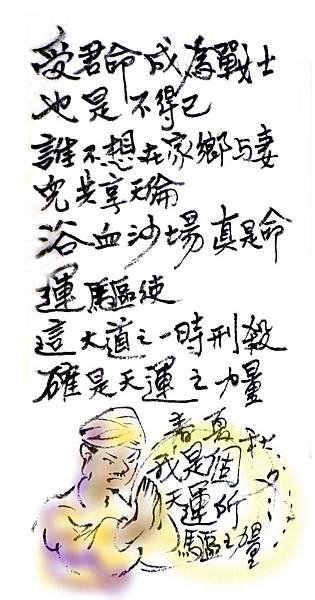 受君命成為戰士
也是不得已
誰不想在家鄉与妻
兒共享天倫
浴血沙場真是命
運驅使
這大道之一時刑殺
確是天運之力量
春夏秋
我是個
天運所
驅之力量